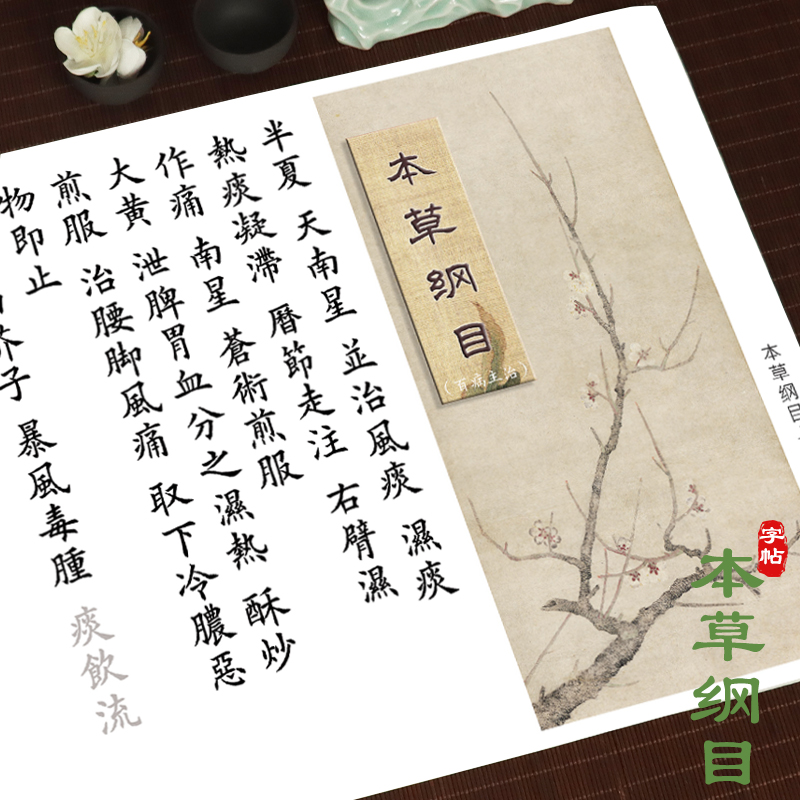 本草纲目
(百病主治)
半夏 天南星 並治風痰 濕痰
熱痰凝滯 曆節走注 右臂濕
作痛 南星 蒼術煎服
大黄 泄脾胃血分之濕熱 酥炒
煎服 治腰脚風痛 取下冷膿惡
物即止
芥子 暴風毒腫 痰飲流
本草纲目
字帖
本草纲目